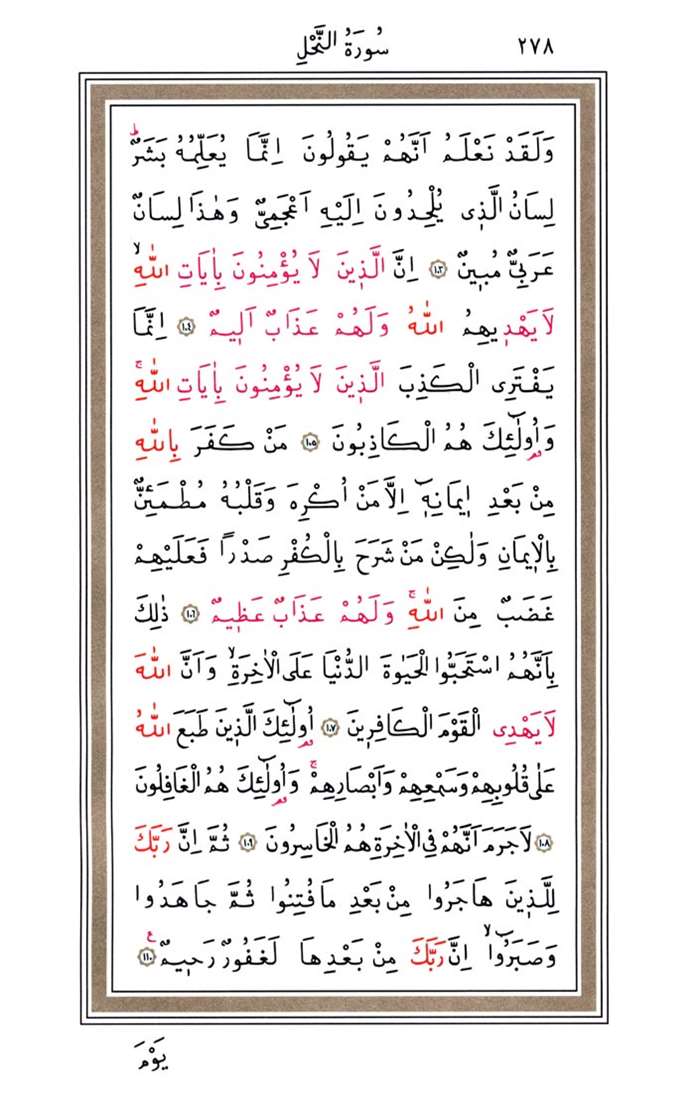 ٢٧٨ سُورَةُ النَّحْلِ
وَلَقَدْ نَعْلَمُ اَنَّهُمْ يَقُولُونَ اِنَّمَا يُعَلِّمُهُ بَشَرٌۜ
لِسَانُ الَّذ۪ي يُلْحِدُونَ اِلَيْهِ اَعْجَمِيٌّ وَهٰذَا لِسَانٌ
عَرَبِيٌّ مُب۪ينٌ ﴿١٠٣﴾ اِنَّ الَّذ۪ينَ لَا يُؤْمِنُونَ بِاٰيَاتِ اللّٰهِۙ
لَا يَهْد۪يهِمُ اللّٰهُ وَلَهُمْ عَذَابٌ اَل۪يمٌ ﴿١٠٤﴾ اِنَّمَا
يَفْتَرِي الْكَذِبَ الَّذ۪ينَ لَا يُؤْمِنُونَ بِاٰيَاتِ اللّٰهِۚ
وَاُو۬لٰٓئِكَ هُمُ الْكَاذِبُونَ ﴿١٠٥﴾ مَنْ كَفَرَ بِاللّٰهِ
مِنْ بَعْدِ ا۪يمَانِه۪ٓ اِلَّا مَنْ اُكْرِهَ وَقَلْبُهُ مُطْمَئِنٌّ
بِالْا۪يمَانِ وَلٰكِنْ مَنْ شَرَحَ بِالْكُفْرِ صَدْراً فَعَلَيْهِمْ
غَضَبٌ مِنَ اللّٰهِۚ وَلَهُمْ عَذَابٌ عَظ۪يمٌ ﴿١٠٦﴾ ذٰلِكَ
بِاَنَّهُمُ اسْتَحَبُّوا الْحَيٰوةَ الدُّنْيَا عَلَى الْاٰخِرَةِۙ وَاَنَّ اللّٰهَ
لَا يَهْدِي الْقَوْمَ الْكَافِر۪ينَ ﴿١٠٧﴾ اُو۬لٰٓئِكَ الَّذ۪ينَ طَبَعَ اللّٰهُ
عَلٰى قُلُوبِهِمْ وَسَمْعِهِمْ وَاَبْصَارِهِمْۚ وَاُو۬لٰٓئِكَ هُمُ الْغَافِلُونَ
﴿١٠٨﴾ لَا جَرَمَ اَنَّهُمْ فِي الْاٰخِرَةِ هُمُ الْخَاسِرُونَ ﴿١٠٩﴾ ثُمَّ اِنَّ رَبَّكَ
لِلَّذ۪ينَ هَاجَرُوا مِنْ بَعْدِ مَا فُتِنُوا ثُمَّ جَاهَدُوا
وَصَبَرُٓواۙ اِنَّ رَبَّكَ مِنْ بَعْدِهَا لَغَفُورٌ رَح۪يمٌ ﴿١١٠﴾ ع
يَوْمَ